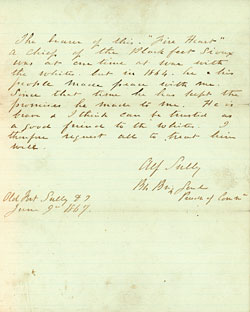 The bearer of this "Fire Heart"
a chief of the Blackfeet Sioux
was at one time at war with
the whites. but in 1864. he & his
people made peace with me.
Since that time he has kept the
promises he made to me. He is
brave & I think can be trusted as
a good friend to the whites. I
therefore request all to treat him
well.
Alf Sully
Bt Brig Genl
Old Fort Sully D T
June 9th 1867.